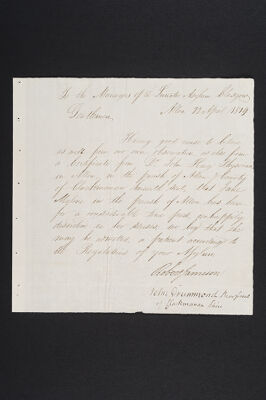 To the Managers of the Lunatic Asylum Glasgow
Alloa 22 April 1819
Gentlemen
Having good cause to believe
as well from our own observation as also from
a Certificate from Dr John Physician
in Alloa, in the parish of Alloa & County
of Clackmannan herewith sent, that Janet
in the parish of Alloa has been
for a considerable time past, unhappily
disordered in her senses, we beg that she
may be admitted, a patient according to
the Regulations of your Asylum
Robert Jameson
John Drummond
of Clackmannan Shire